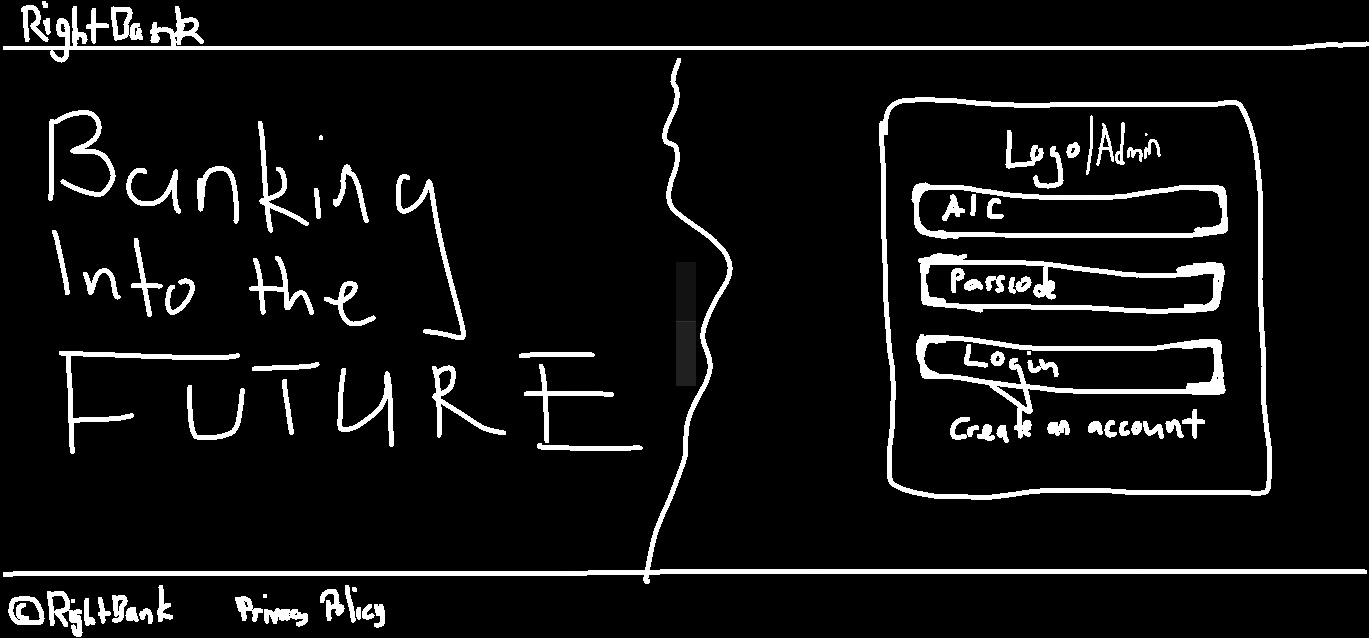 RightBank
Banking
Into the
FUTURE
Logo/Admin
AIC
Passcode
Login
Create an account
©RightBank Privacy Policy